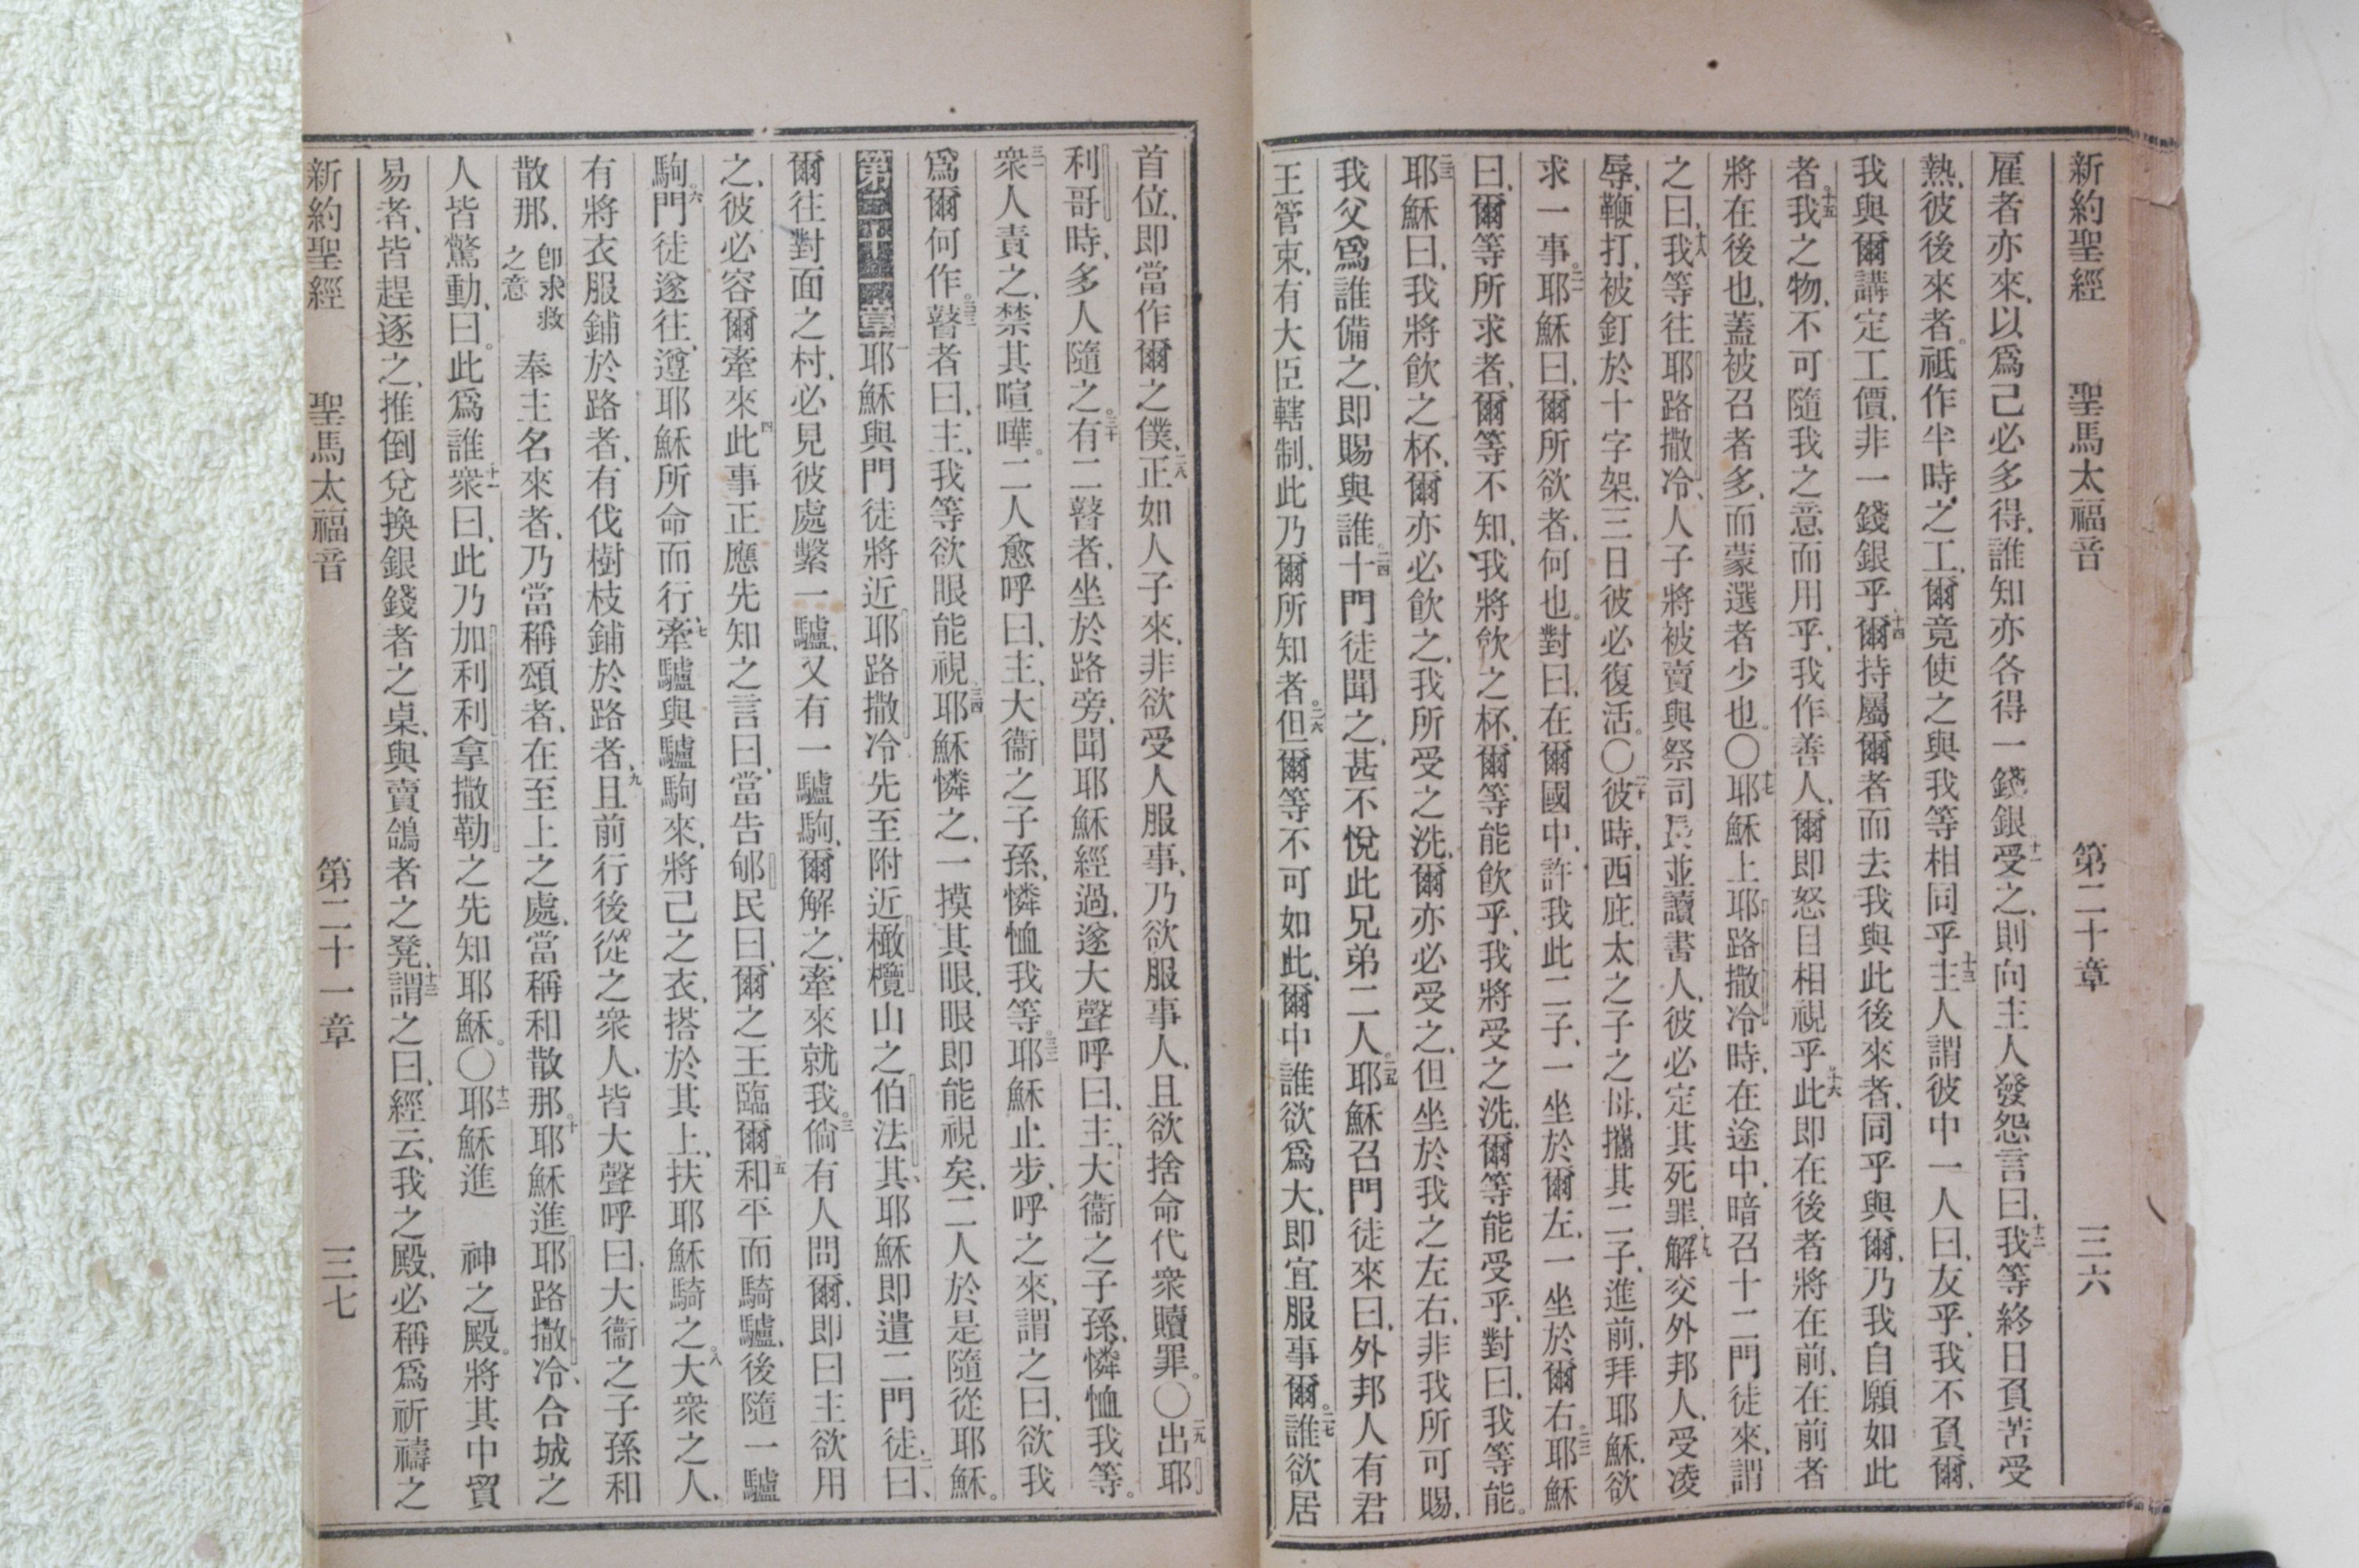 新約聖經 聖馬太福音 第二十章 三六
雇者亦來、以爲己必多得、誰知亦各得一錢銀十一受之、則向主人發怨言曰、十二我等終日負苦受
熱、彼後來者。祇作半時之工、爾竟使之與我等相同乎十三主人謂彼中一人曰、友乎、我不負爾、
我與爾講定工價、非一錢銀乎十四爾持屬爾者而去我與此後來者、同乎與爾、乃我自願如此
者。十五我之物、不可隨我之意而用乎、我作善人、爾即怒目相視乎十六此即在後者將在前、在前者
將在後也、蓋被召者多、而蒙選者少也。〇十七耶穌上耶路撒冷時、在途中、暗召十二門徒來、謂
之曰、十八我等往耶路撒冷、人子將被賣與祭司長並讀書人、彼必定其死罪、十九解交外邦人、受凌
辱、鞭打、被釘於十字架、三日彼必復活。〇二十彼時、西庇太之子之母、攜其二子、進前、拜耶穌、欲
求一事。二一耶穌曰、爾所欲者、何也。對曰、在爾國中、許我此二子、一坐於爾左、一坐於爾右。二二耶穌
曰、爾等所求者、爾等不知、我將飲之杯、爾等能飲乎、我將受之洗、爾等能受乎、對曰、我等能。
二三耶穌曰、我將飲之杯、爾亦必飲之、我所受之洗、爾亦必受之、但坐於我之左右、非我所可賜、
我父爲誰備之、即賜與誰。二四十門徒聞之、甚不悅此兄弟二人。二五耶穌召門徒來曰、外邦人有君
王管束、有大臣轄制、此乃爾所知者。二六但爾等不可如此、爾中誰欲爲大、即宜服事爾。二七誰欲居
首位、即當作爾之僕、二八正如人子來、非欲受人服事、乃欲服事人、且欲捨命代衆贖罪。〇二九出耶
利哥時、多人隨之。三十有二瞽者、坐於路旁、聞耶穌經過、遂大聲呼曰、主、大衞之子孫、憐恤我等。
三一衆人責之、禁其喧嘩。二人愈呼曰、主、大衞之子孫、憐恤我等。三二耶穌止步、呼之來、謂之曰、欲我
爲爾何作。三三瞽者曰、主、我等欲眼能視三四耶穌憐之、一摸其眼、眼即能視矣、二人於是隨從耶穌。
第二十一章一耶穌與門徒將近耶路撒冷先至附近橄欖山之伯法其、耶穌即遣二門徒、二曰、
爾往對面之村、必見彼處繫一驢、又有一驢駒、爾解之、牽來就我。三倘有人問爾、即曰主欲用
之、彼必容爾牽來四此事正應先知之言曰、當告郇民曰、爾之王臨爾五和平而騎驢、後隨一驢
駒。六門徒遂往、遵耶穌所命而行、七牽驢與驢駒來、將己之衣、搭於其上、扶耶穌騎之。八大衆之人、
有將衣服鋪於路者、有伐樹枝鋪於路者、九且前行後從之衆人、皆大聲呼曰、大衞之子孫和
散那、即求救之意 奉主名來者、乃當稱頌者、在至上之處、當稱和散那。十耶穌進耶路撒冷、合城之
人皆驚動、曰。此爲誰十一衆曰、此乃加利利拿撒勒之先知耶穌。〇十二耶穌進 神之殿。將其中貿
易者、皆趕逐之、推倒兌換銀錢者之桌、與賣鴿者之凳、十三謂之曰、經云、我之殿、必稱爲祈禱之
新約聖經 聖馬太福音 第二十一章 三七